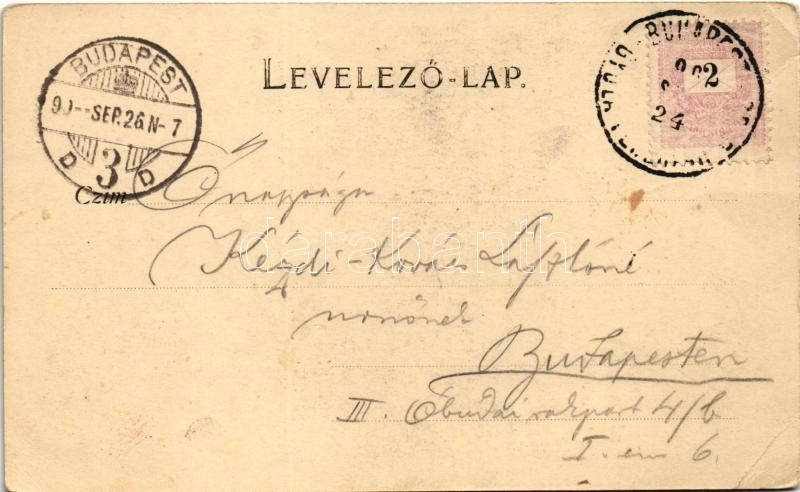 LEVELEZŐ-LAP.
BUDAPEST
90--SEP.26.N-7
D 3 D
BUDAPEST
24
2
Czim
Őnagysága
Kézdi-Kovács Lászlóné
úrnőnek
Budapesten
III. Óbudai rakpart 4/b
I. em 6.
darabanth